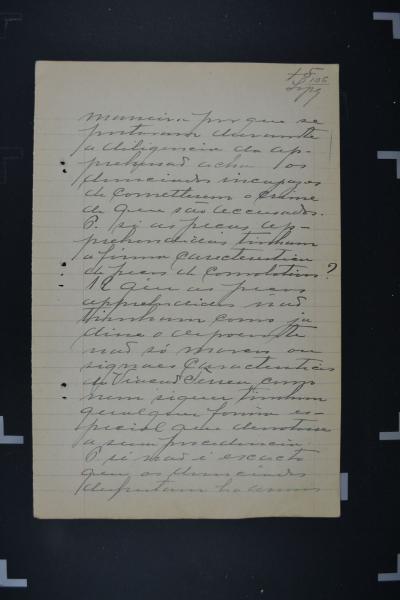 maneira porque se
portaram durante
a diligencia da ap-
prehensão acha os
denunciados incapazes
de cometterem o crime
de que são accusados.
P. si as peças ap-
prehendidas tinham
a forma caracteristica
de peças de comolotivos?
R que as peças
apprehendidas não
tinham como já
disse o depoente
não só marcas ou
signaes caracteristicos
da Viação Ferrea como
nem siquer tinham
qualquer forma es-
pecial que denotasse
a sua procedencia.
P. si não é exacto
que os denunciados
desfrutam